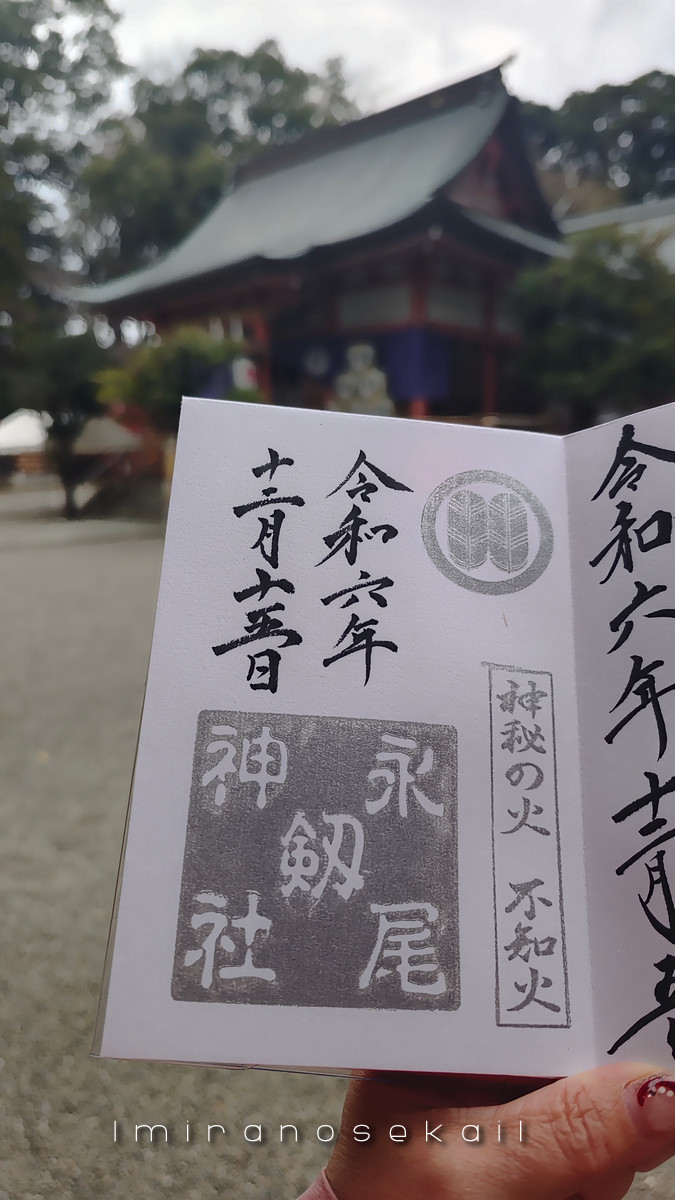 令和六年十二月十五
神秘の火 不知火
令和六年
十二月十五日
永尾
剱
神社
Imiranosekail